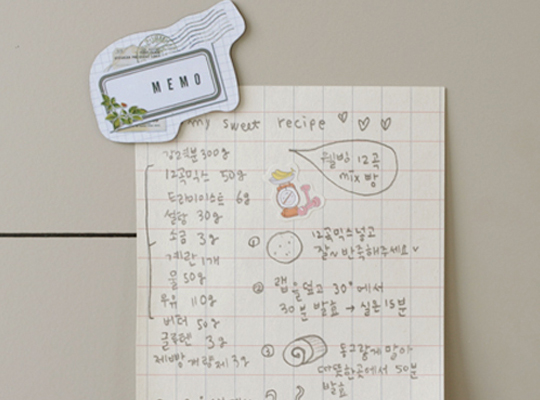 MEMO
my sweet recipe ♡ ♡ ♡
강력분 300g
12곡믹스 50g
드라이이스트 6g
설탕 30g
소금 3g
계란 1개
물 50g
우유 110g
버터 50g
글루텐 3g
제빵개량제 3g
웰빙 12곡
mix 빵
① 12곡믹스넣고
잘~ 반죽해주세요
② 랩을 씌고 30°에서
30분 발효 → 실온 15분
③ 동그랗게 말아
따뜻한곳에서 50분
발효